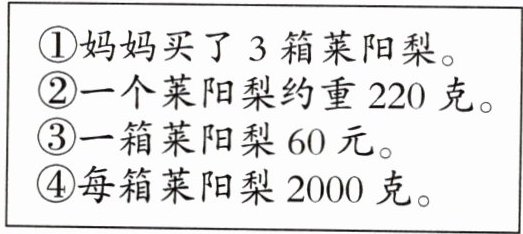 ①妈妈买了 3 箱莱阳梨。
②一个莱阳梨约重 220 克。
③一箱莱阳梨 60 元。
④每箱莱阳梨 2000 克。